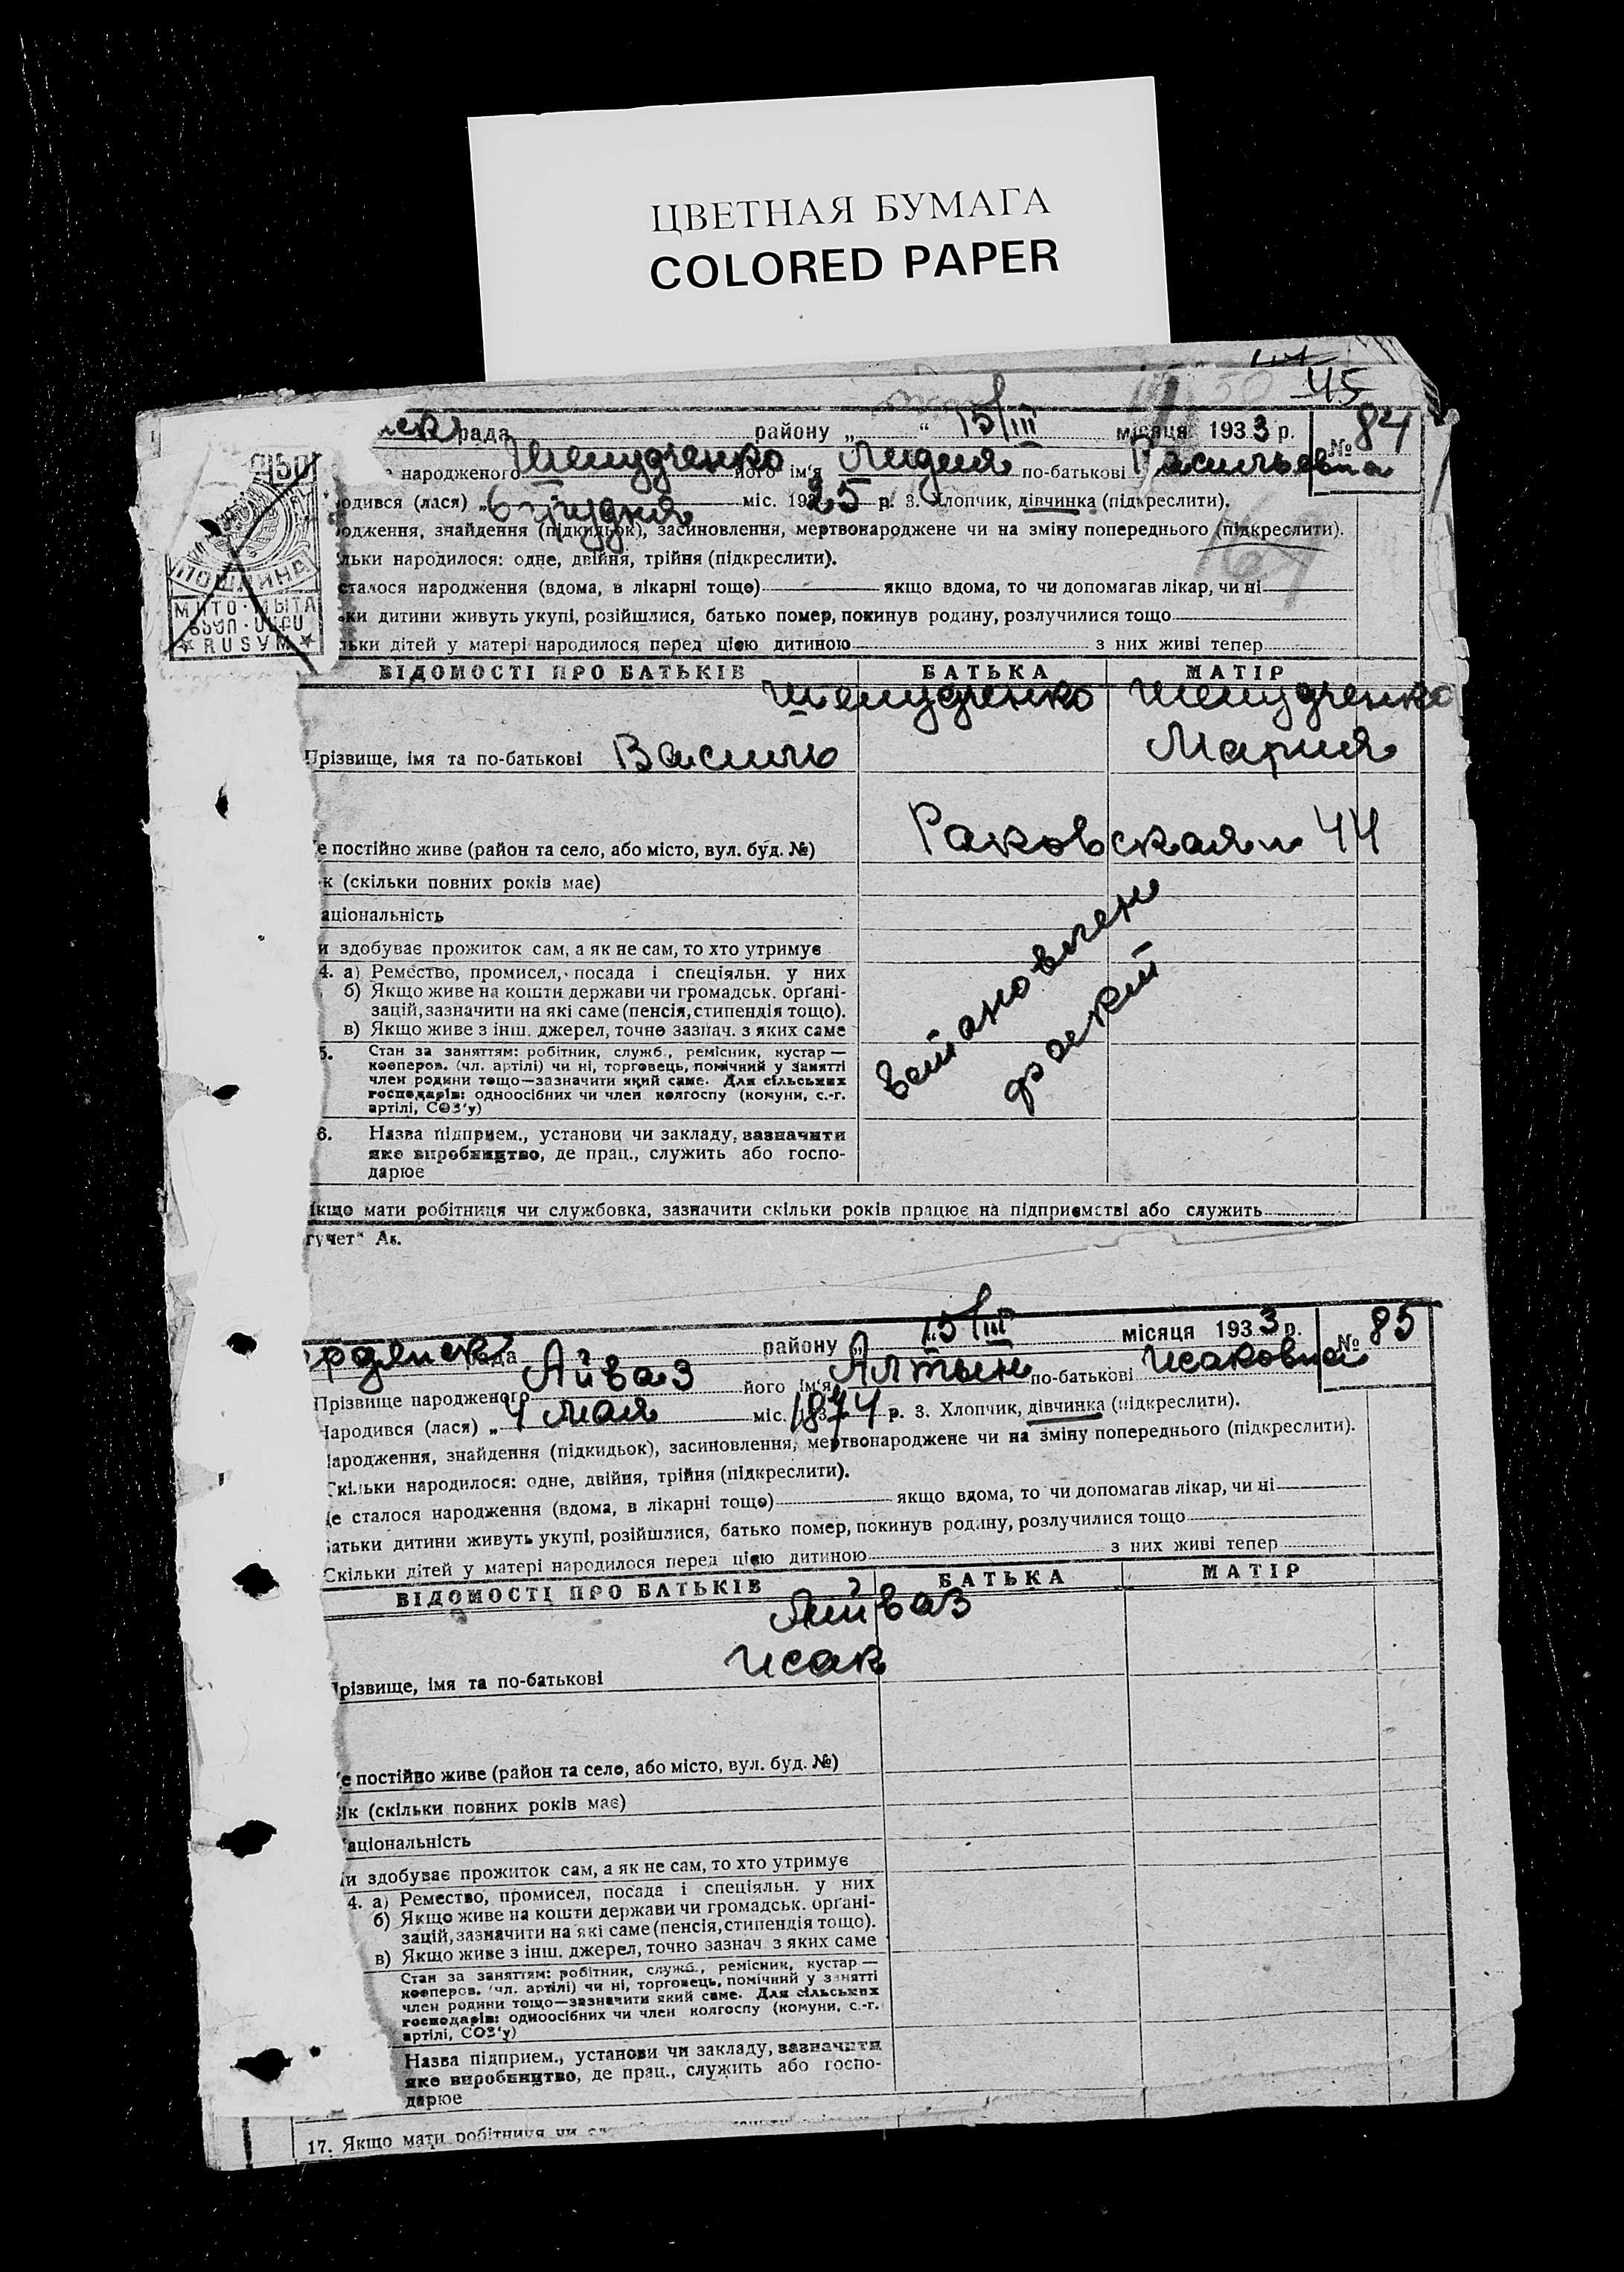 ЦВЕТНАЯ БУМАГА
COLORED PAPER
45
рада района „ “ 15/III місяця 1933 р. № 84
народженого Шемудченко його ім'я Лидия по-батькові Васильевна
одився (лася) „6 грудня міс. 1925 р. 3. Хлопчик, дівчинка (підкреслити).
одження, знайдення (підкидьок), засиновлення, мертвонароджене чи на зміну попереднього (підкреслити).
льки народилося: одне, двійня, трійня (підкреслити).
сталося народження (вдома, в лікарні тощо) якщо вдома, то чи допомагав лікар, чи ні
ки дитини живуть укупі, розійшлися, батько помер, покинув родину, розлучилися тощо
льки дітей у матері народилося перед цією дитиною з них живі тепер
50
ПОШЛИНА
МИТО · МЫТА
RUSУM
ВІДОМОСТІ ПРО БАТЬКІВ БАТЬКА МАТІР
Шемудченко Шемудченко
Прізвище, імя та по-батькові Василь Мария
е постійно живе (район та село, або місто, вул. буд. №) Раковская 44
к (скільки повних років має)
аціональність
и здобуває прожиток сам, а як не сам, то хто утримує
4. а) Ремество, промисел, посада і спеціяльн. у них
б) Якщо живе на кошти держави чи громадськ. органі-
зацій, зазначити на які саме (пенсія, стипендія тощо).
в) Якщо живе з інш. джерел, точно зазнач. з яких саме
5. Стан за заняттям: робітник, служб., ремісник, кустар —
кооперов. (чл. артілі) чи ні, торговець, помічний у занятті
член родини тощо—зазначити який саме. Для сільських
господарів: одноосібних чи член колгоспу (комуни, с.-г.
артілі, СОЗ'у)
6. Назва підприєм., установи чи закладу, зазначити
яке виробництво, де прац., служить або госпо-
дарює
якщо мати робітниця чи службовка, зазначити скільки років працює на підприємстві або служить
гучет" Ак.
рдянск рада району „ 15/III місяця 1933 р. № 85
Прізвище народженого Айваз його ім'я Алтын по-батькові Исаковна
Народився (лася) „4 мая міс. 1874 р. 3. Хлопчик, дівчинка (підкреслити).
народження, знайдення (підкидьок), засиновлення, мертвонароджене чи на зміну попереднього (підкреслити).
Скільки народилося: одне, двійня, трійня (підкреслити).
Де сталося народження (вдома, в лікарні тощо) якщо вдома, то чи допомагав лікар, чи ні
батьки дитини живуть укупі, розійшлися, батько помер, покинув родину, розлучилися тощо
Скільки дітей у матері народилося перед цією дитиною з них живі тепер
ВІДОМОСТІ ПРО БАТЬКІВ БАТЬКА МАТІР
Айваз
Исак
Прізвище, імя та по-батькові
е постійно живе (район та село, або місто, вул. буд. №)
Вік (скільки повних років має)
аціональність
и здобуває прожиток сам, а як не сам, то хто утримує
4. а) Ремество, промисел, посада і спеціяльн. у них
б) Якщо живе на кошти держави чи громадськ. органі-
зацій, зазначити на які саме (пенсія, стипендія тощо).
в) Якщо живе з інш. джерел, точно зазнач. з яких саме
Стан за заняттям: робітник, служб., ремісник, кустар —
кооперов. (чл. артілі) чи ні, торговець, помічний у занятті
член родини тощо—зазначити який саме. Для сільських
господарів: одноосібних чи член колгоспу (комуни, с.-г.
артілі, СОЗ'у)
Назва підприєм., установи чи закладу, зазначити
яке виробництво, де прац., служить або госпо-
дарює
17. Якщо мати робітниця чи